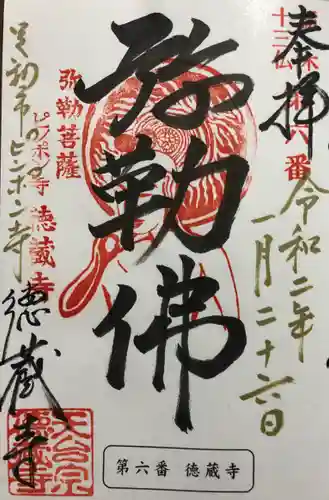 奉拝
十三仏
六番
令和二年
一月二十六日
弥勒佛
弥勒菩薩
ピンポン寺
徳蔵寺
足利市のピンポン寺
徳蔵寺
第六番 徳蔵寺